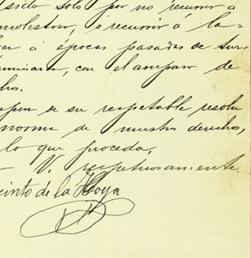 sido solo por no recurrir á
molestom, é recurrir á la
á épocas pasadas de sur
minaran, con el amparo de
dro.
de su respetable resolu
norma de nuestro derecho,
lo que proceda,
V. respetuosamente
cinto de la Hoya